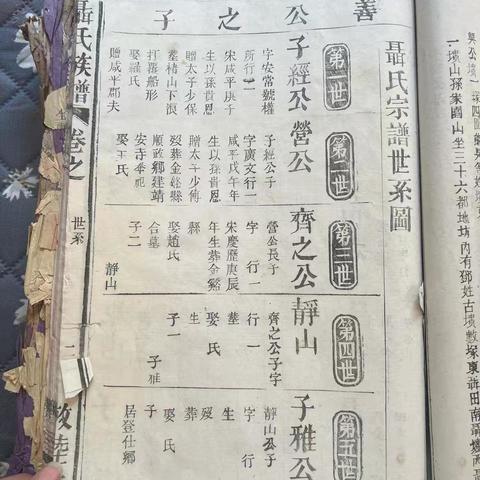 善公之子
聶氏宗譜世系圖
第一世
子經公
字安常號權
所行二
宋咸平庚子
生以孫貴恩
贈太子少保
葬精山下
打
船形
娶羅氏
贈咸平郡夫
第二世
營公
子經公子
字廣文行一
咸平戊午年
生以孫貴恩
贈太子少傅
歿葬金谿縣
順政鄉建靖
安寺
娶王氏
第三世
齊之公
營公長子
字 行一
宋慶歷庚辰
年生葬金谿
縣
娶趙氏
合墓
子二
靜山
第四世
靜山
齊之公子字
行一
墓
娶 氏
生
子一
子雅
第五世
子雅公
靜山公子
字 行
生
歿
葬
娶 氏
子
居登仕鄉
聶氏族譜
卷之
世系
一
敦睦
一墳山孫家園山坐三十六都地坊內有鄧姓古墳數塚東